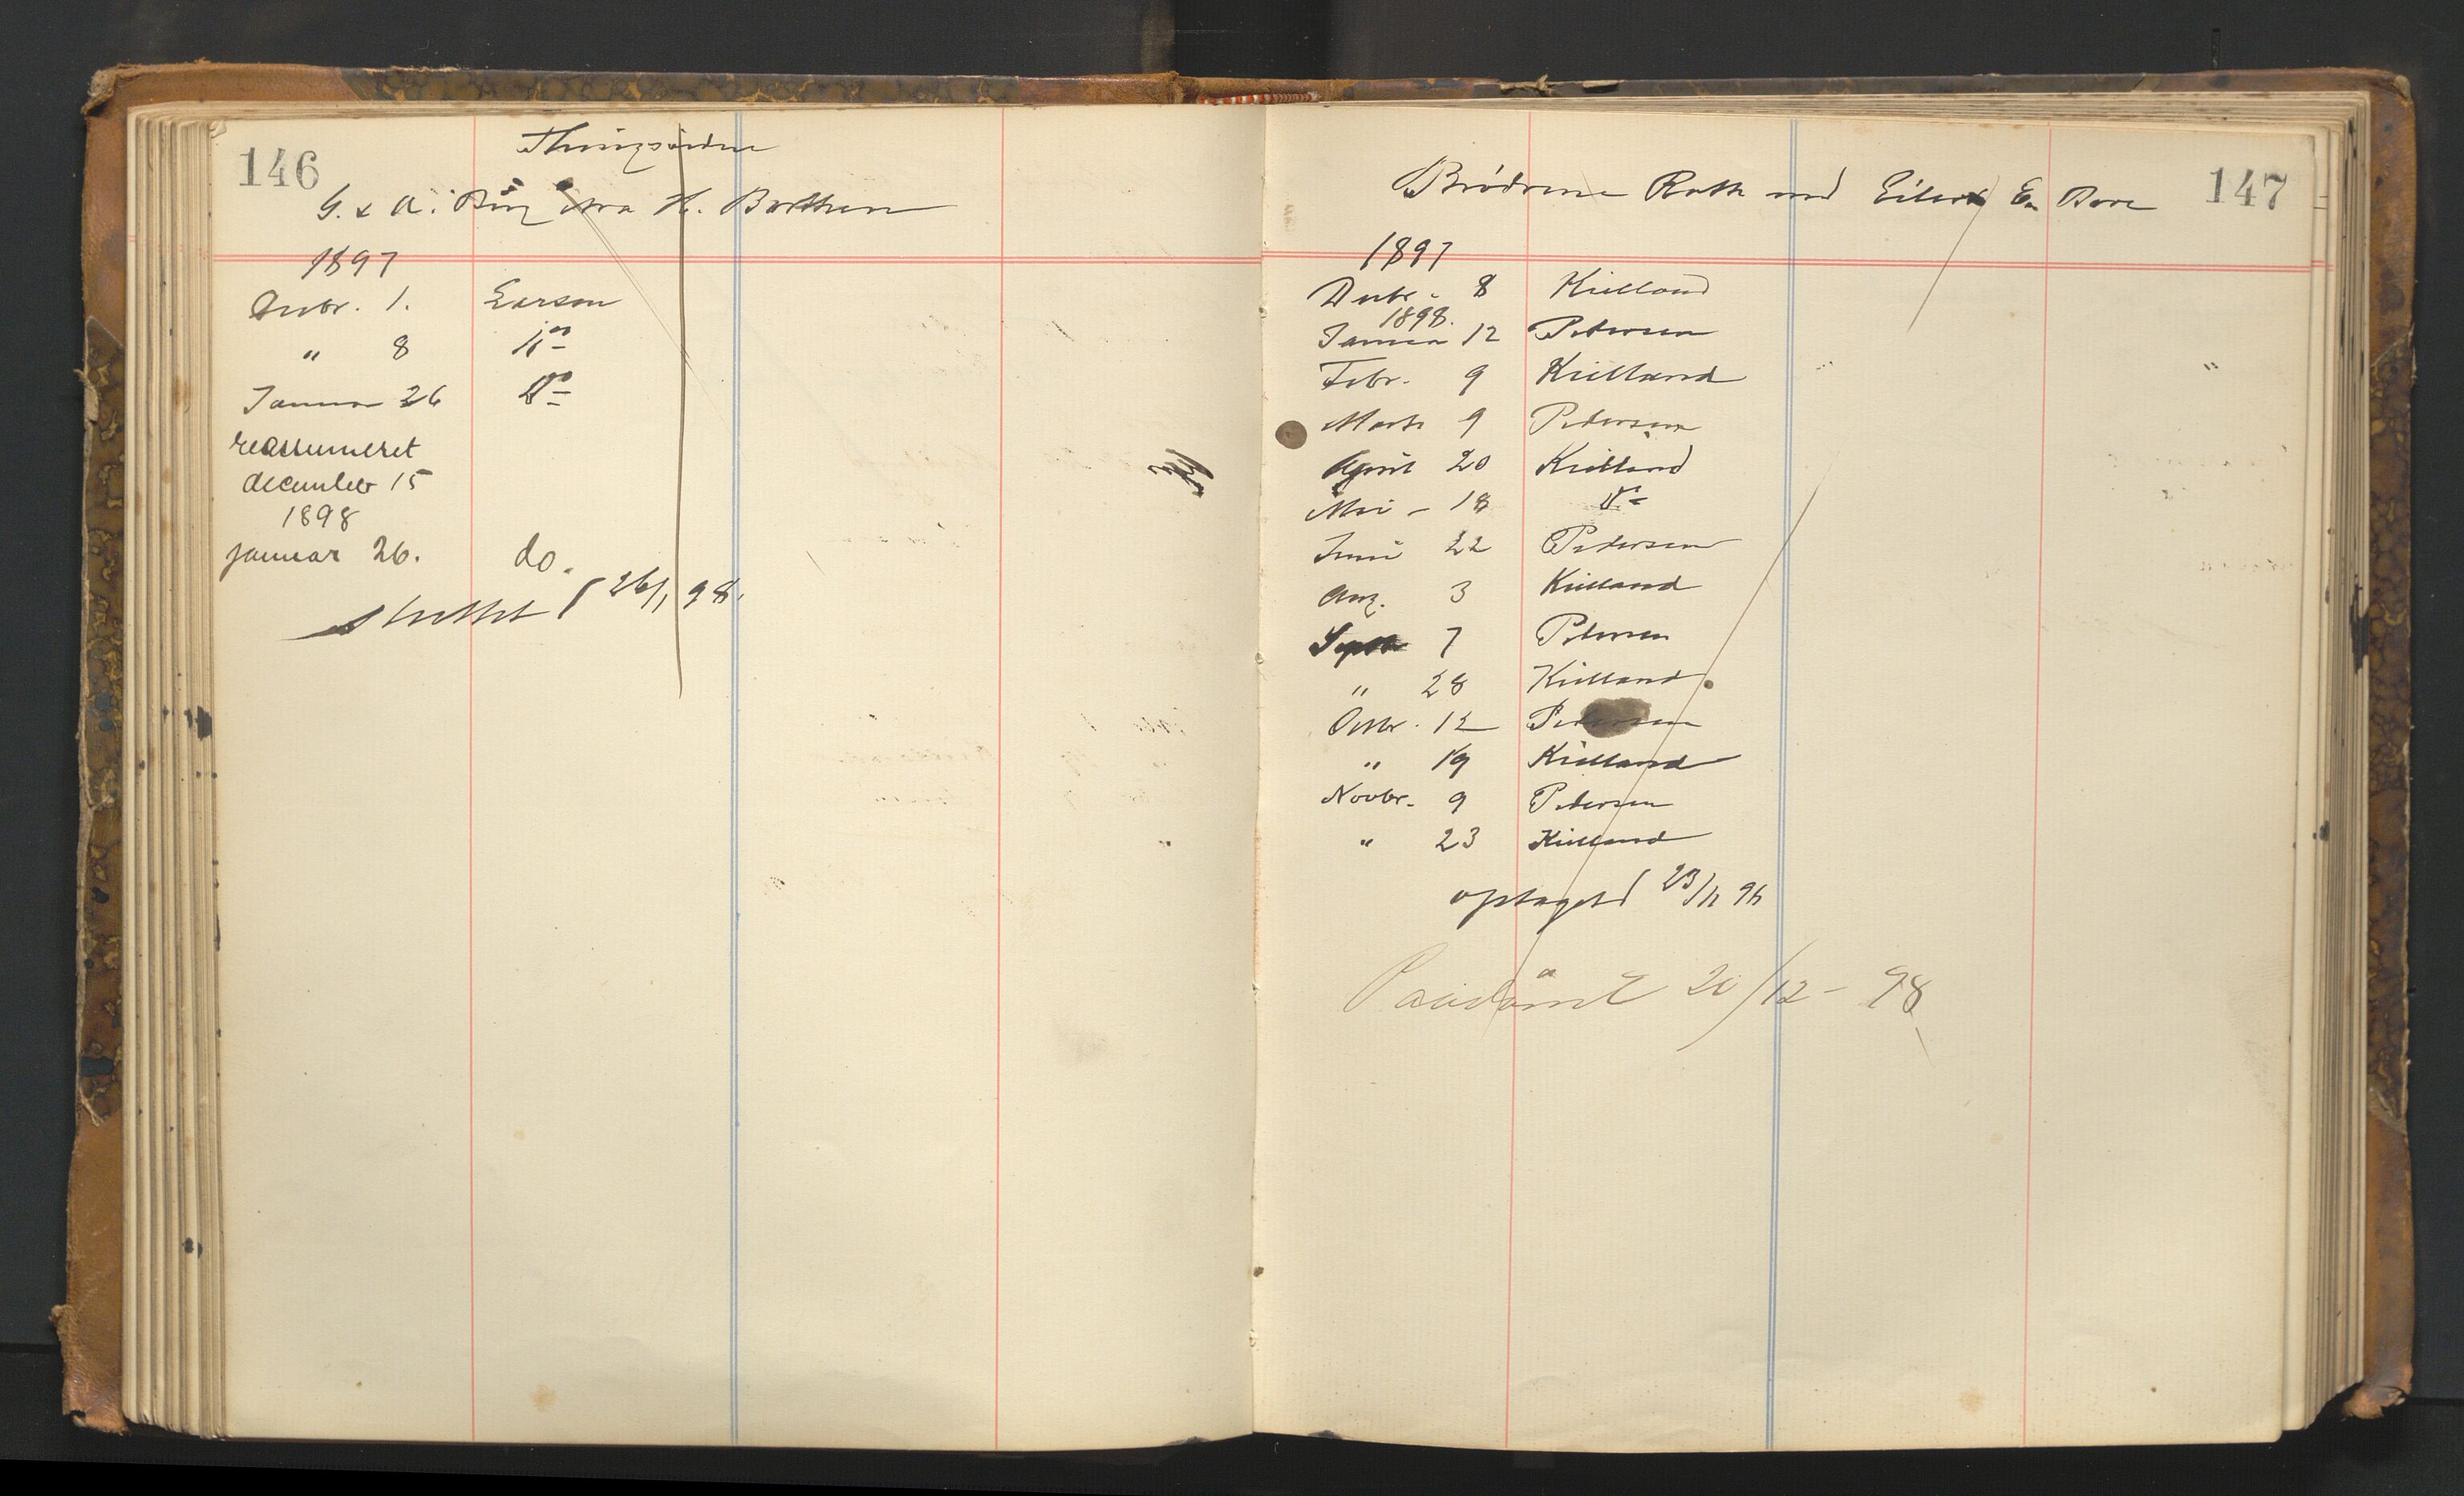 146
G. & A. Ring ctra H. Barthsen
1897
Decbr. 1. Larsen
" 8 do
Januar 26 do
reassumeret
december 15
1898
januar 26. do.
sluttet 26/1 98.
147
Brødrene Rath md Eilert E. Bore
1897
Decbr. 8 Kielland
1898.
Januar 12 Petersen
Febr. 9 Kielland
Marts 9 Petersen
April 20 Kielland
Mai - 18 do
Juni 22 Petersen
Aug. 3 Kielland
Septr 7 Petersen
" 28 Kielland
Octbr. 12 Petersen
" 19 Kielland
Novbr. 9 Petersen
" 23 Kielland
optaget 23/11 98
Paadömt 20/12 - 98